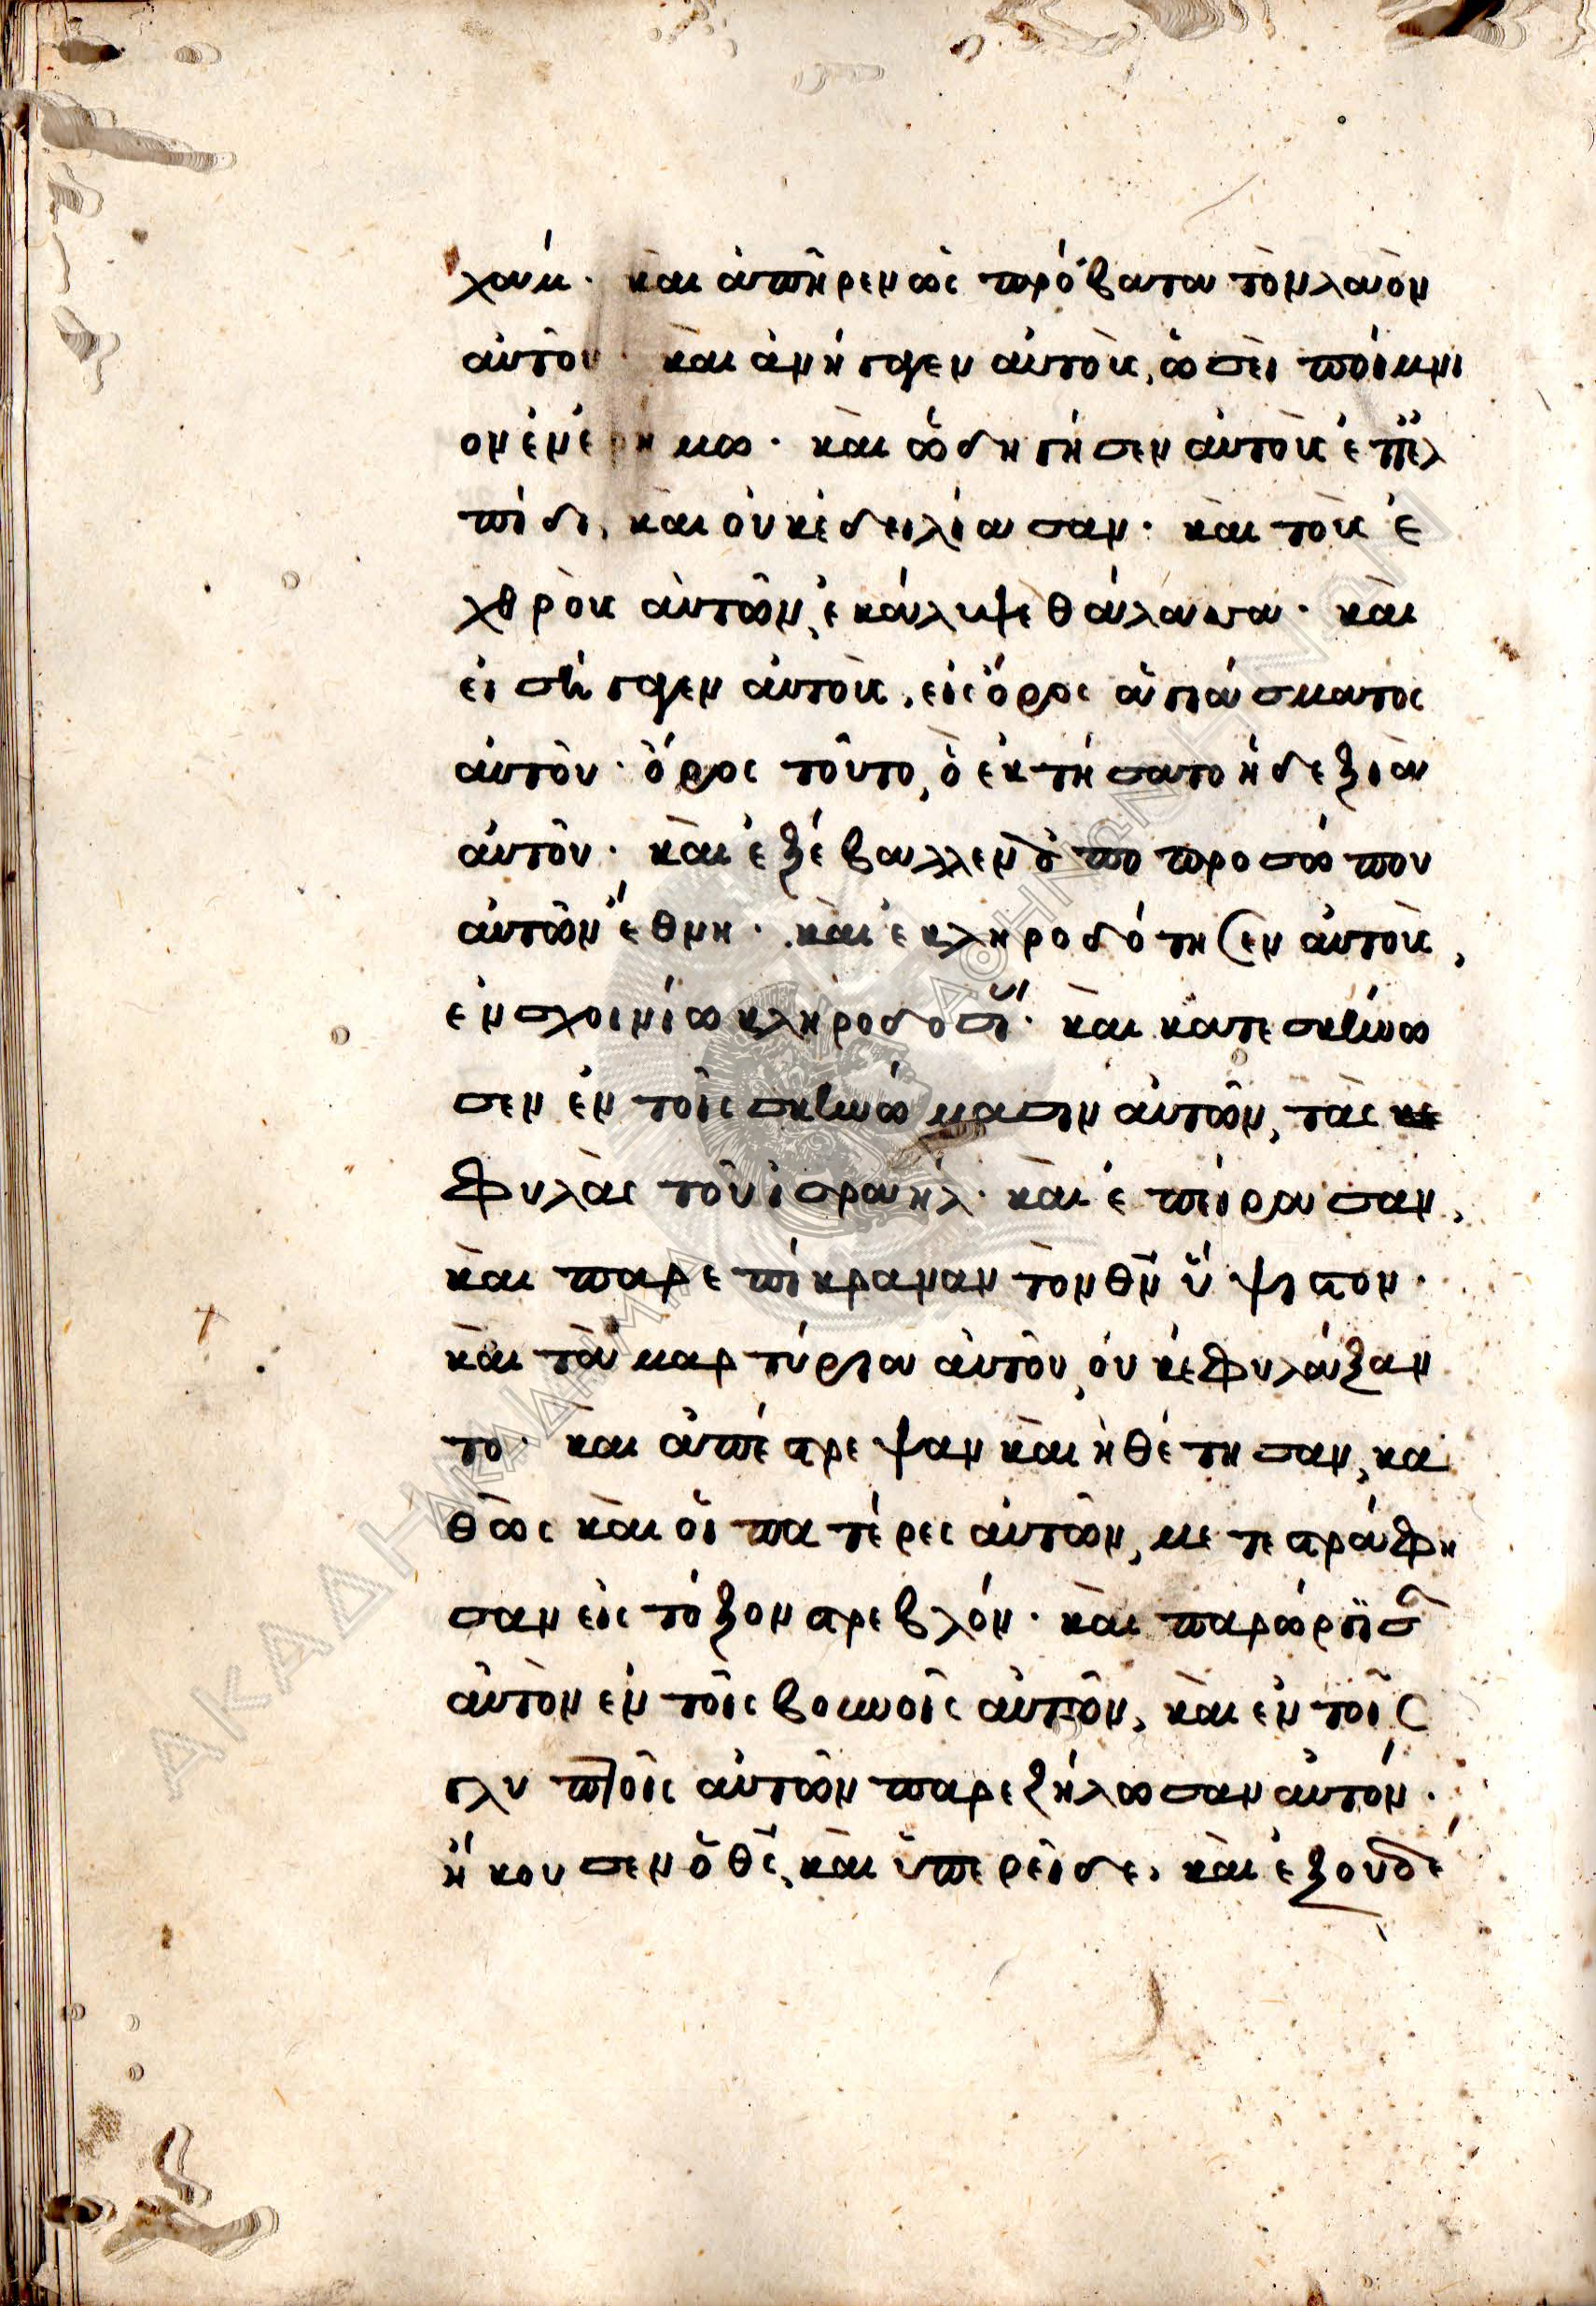 χαμ· καὶ ἀπῆρεν ὡς πρόβατα τὸν λαὸν
αὐτοῦ· καὶ ἀνήγαγεν αὐτοὺς, ὡσεὶ ποίμνι
ον ἐν ἐρήμω· καὶ ὡδήγησεν αὐτοὺς ἐπ ἐλ
πίδι, καὶ οὐκ ἐδειλίασαν· καὶ τοὺς ἐ
χθροὺς αὐτῶν, ἐκάλυψε θάλασσα· καὶ
εἰσήγαγεν αὐτοὺς, εἰς ὄρος ἁγιάσματος
αὐτοῦ· ὄρος τοῦτο, ὃ ἐκτήσατο ἡ δεξιὰ
αὐτοῦ· καὶ ἐξέβαλλεν ἀπο προσώπου
αὐτῶν ἔθνη· καὶ ἐκληροδότησεν αὐτοὺς,
ἐν σχοινίω κληροδοσί· καὶ κατεσκήνω
σεν ἐν τοῖς σκηνώμασιν αὐτῶν, τὰς
φυλὰς τοῦ ἰσραήλ· καὶ ἐπείρασαν,
καὶ παρεπίκραναν τὸν θν ὕψιστον·
καὶ τὰ μαρτύρια αὐτοῦ, οὐκ ἐφυλάξαν
το· καὶ ἀπέστρεψαν καὶ ἠθέτησαν, κα
θὼς καὶ οἱ πατέρες αὐτῶν, μετεστράφη
σαν εἰς τόξον στρεβλόν· καὶ παρώργισ
αὐτὸν ἐν τοῖς βουνοῖς αὐτῶν, καὶ ἐν τοῖς
γλυπτοῖς αὐτῶν παρεζήλωσαν αὐτόν·
ἤκουσεν ὁ θς, καὶ ὑπερεῖδε, καὶ ἐξουδέ
ΑΚΑΔΗΜΙΑ ΑΘΗΝΩΝ